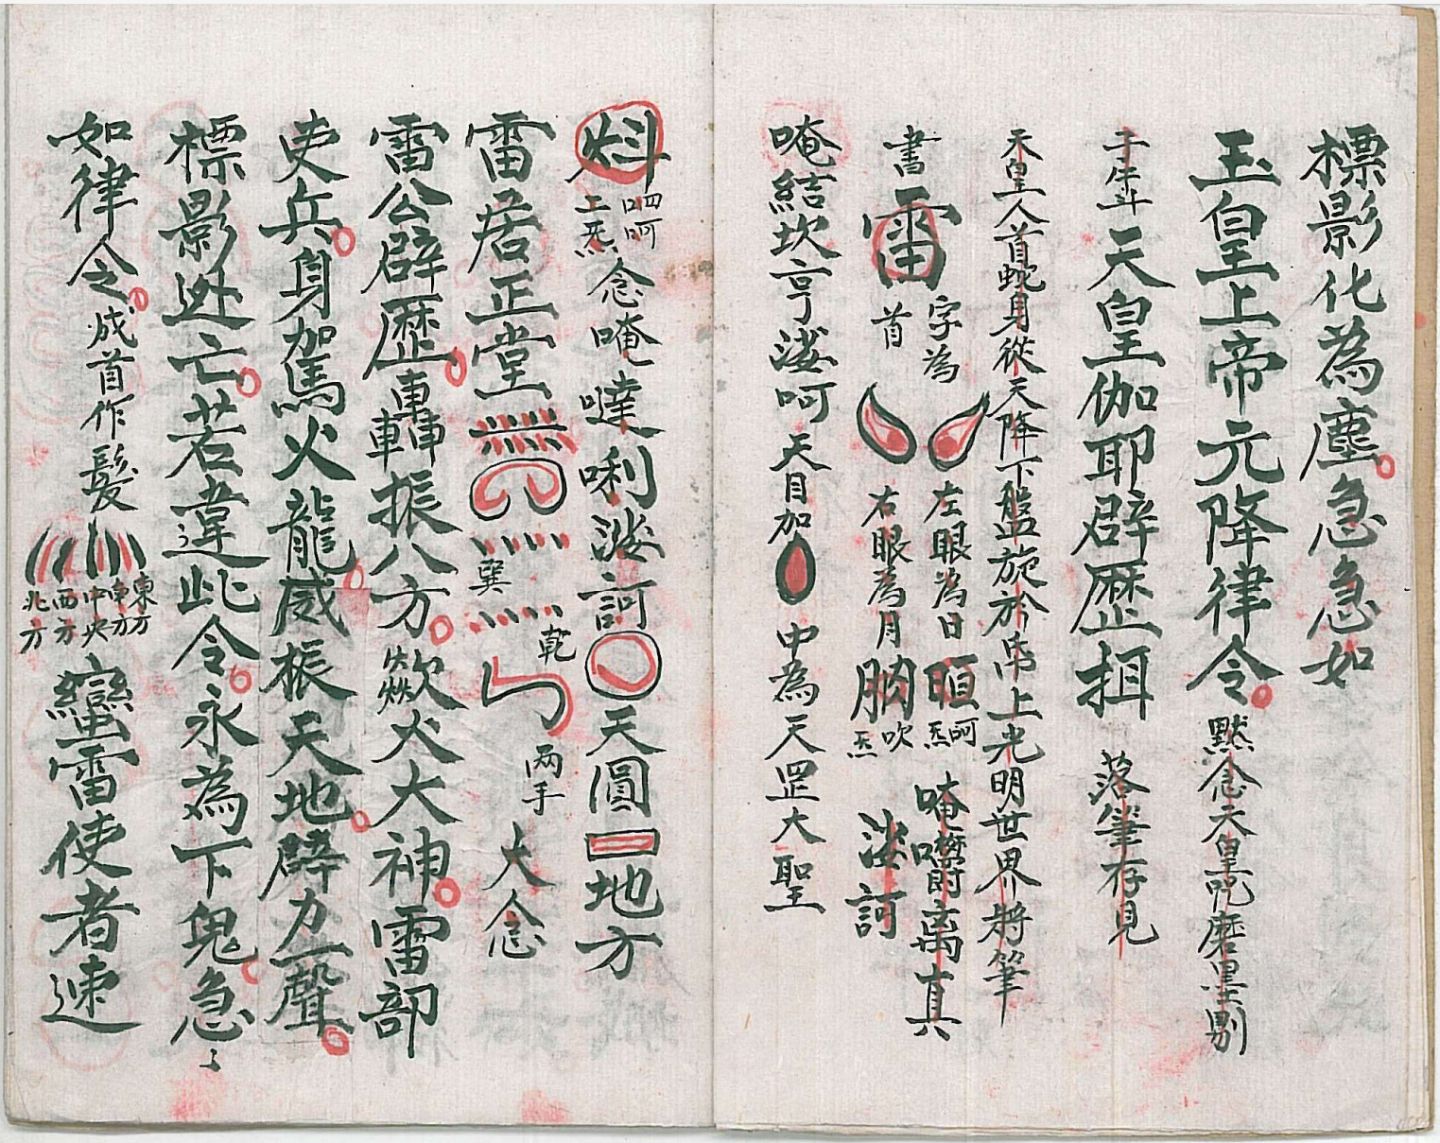 標影化為塵急急如
玉皇上帝元降律令默念天皇咒磨墨剔
天皇伽耶辟歷揖落筆存見
天皇人首蛇身從天降下盤旋於帛上光明世界將筆
書雷字為首左眼為日右眼為月眲呵炁朒吹炁唵嚌真娑訶
唵結坎亨娑呵天目加中為天罡大聖
㪵呬呵二炁念唵噠唎娑訶天圓地方
雷居正堂巽乾两手大念
雷公辟歷轟轉振八方欻火大神雷部
吏兵身駕火龍威振天地劈力一聲
標影逃亡若違此令永為下鬼急
如律令成首作髮東方南方中央西方北方蠻雷使者速